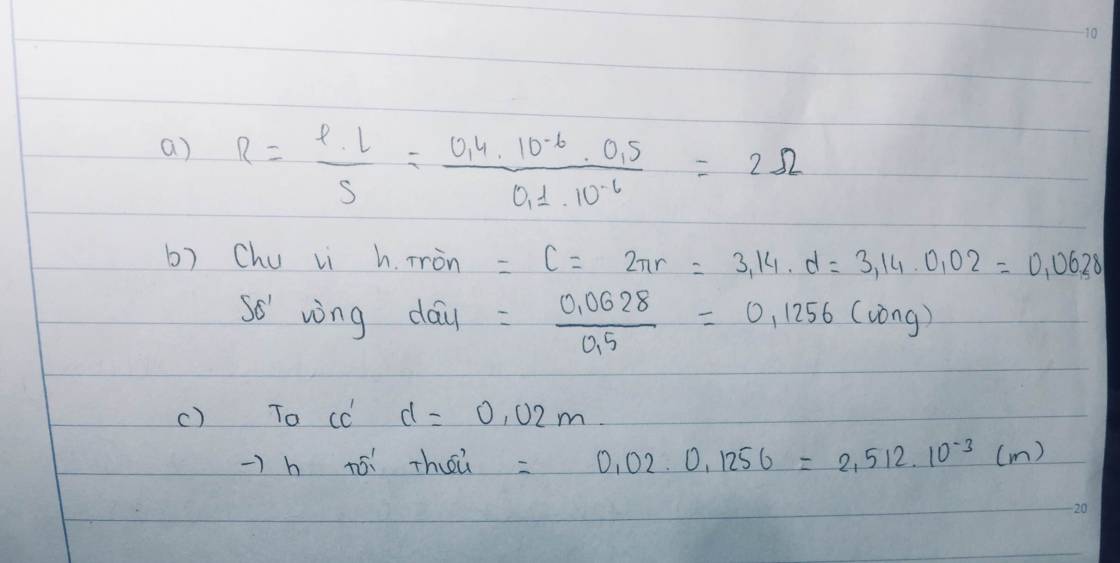 10
a) R = ρ.l / S = 0,4.10⁻⁶.0,5 / 0,1.10⁻⁶ = 2Ω
b) Chu vi h.tròn = C = 2πr = 3,14.d = 3,14.0,02 = 0,0628
Số vòng dây = 0,0628 / 0,5 = 0,1256 (vòng)
c) Ta có d = 0,02m.
→ h tối thiểu = 0,02.0,1256 = 2,512.10⁻³ (m)
20